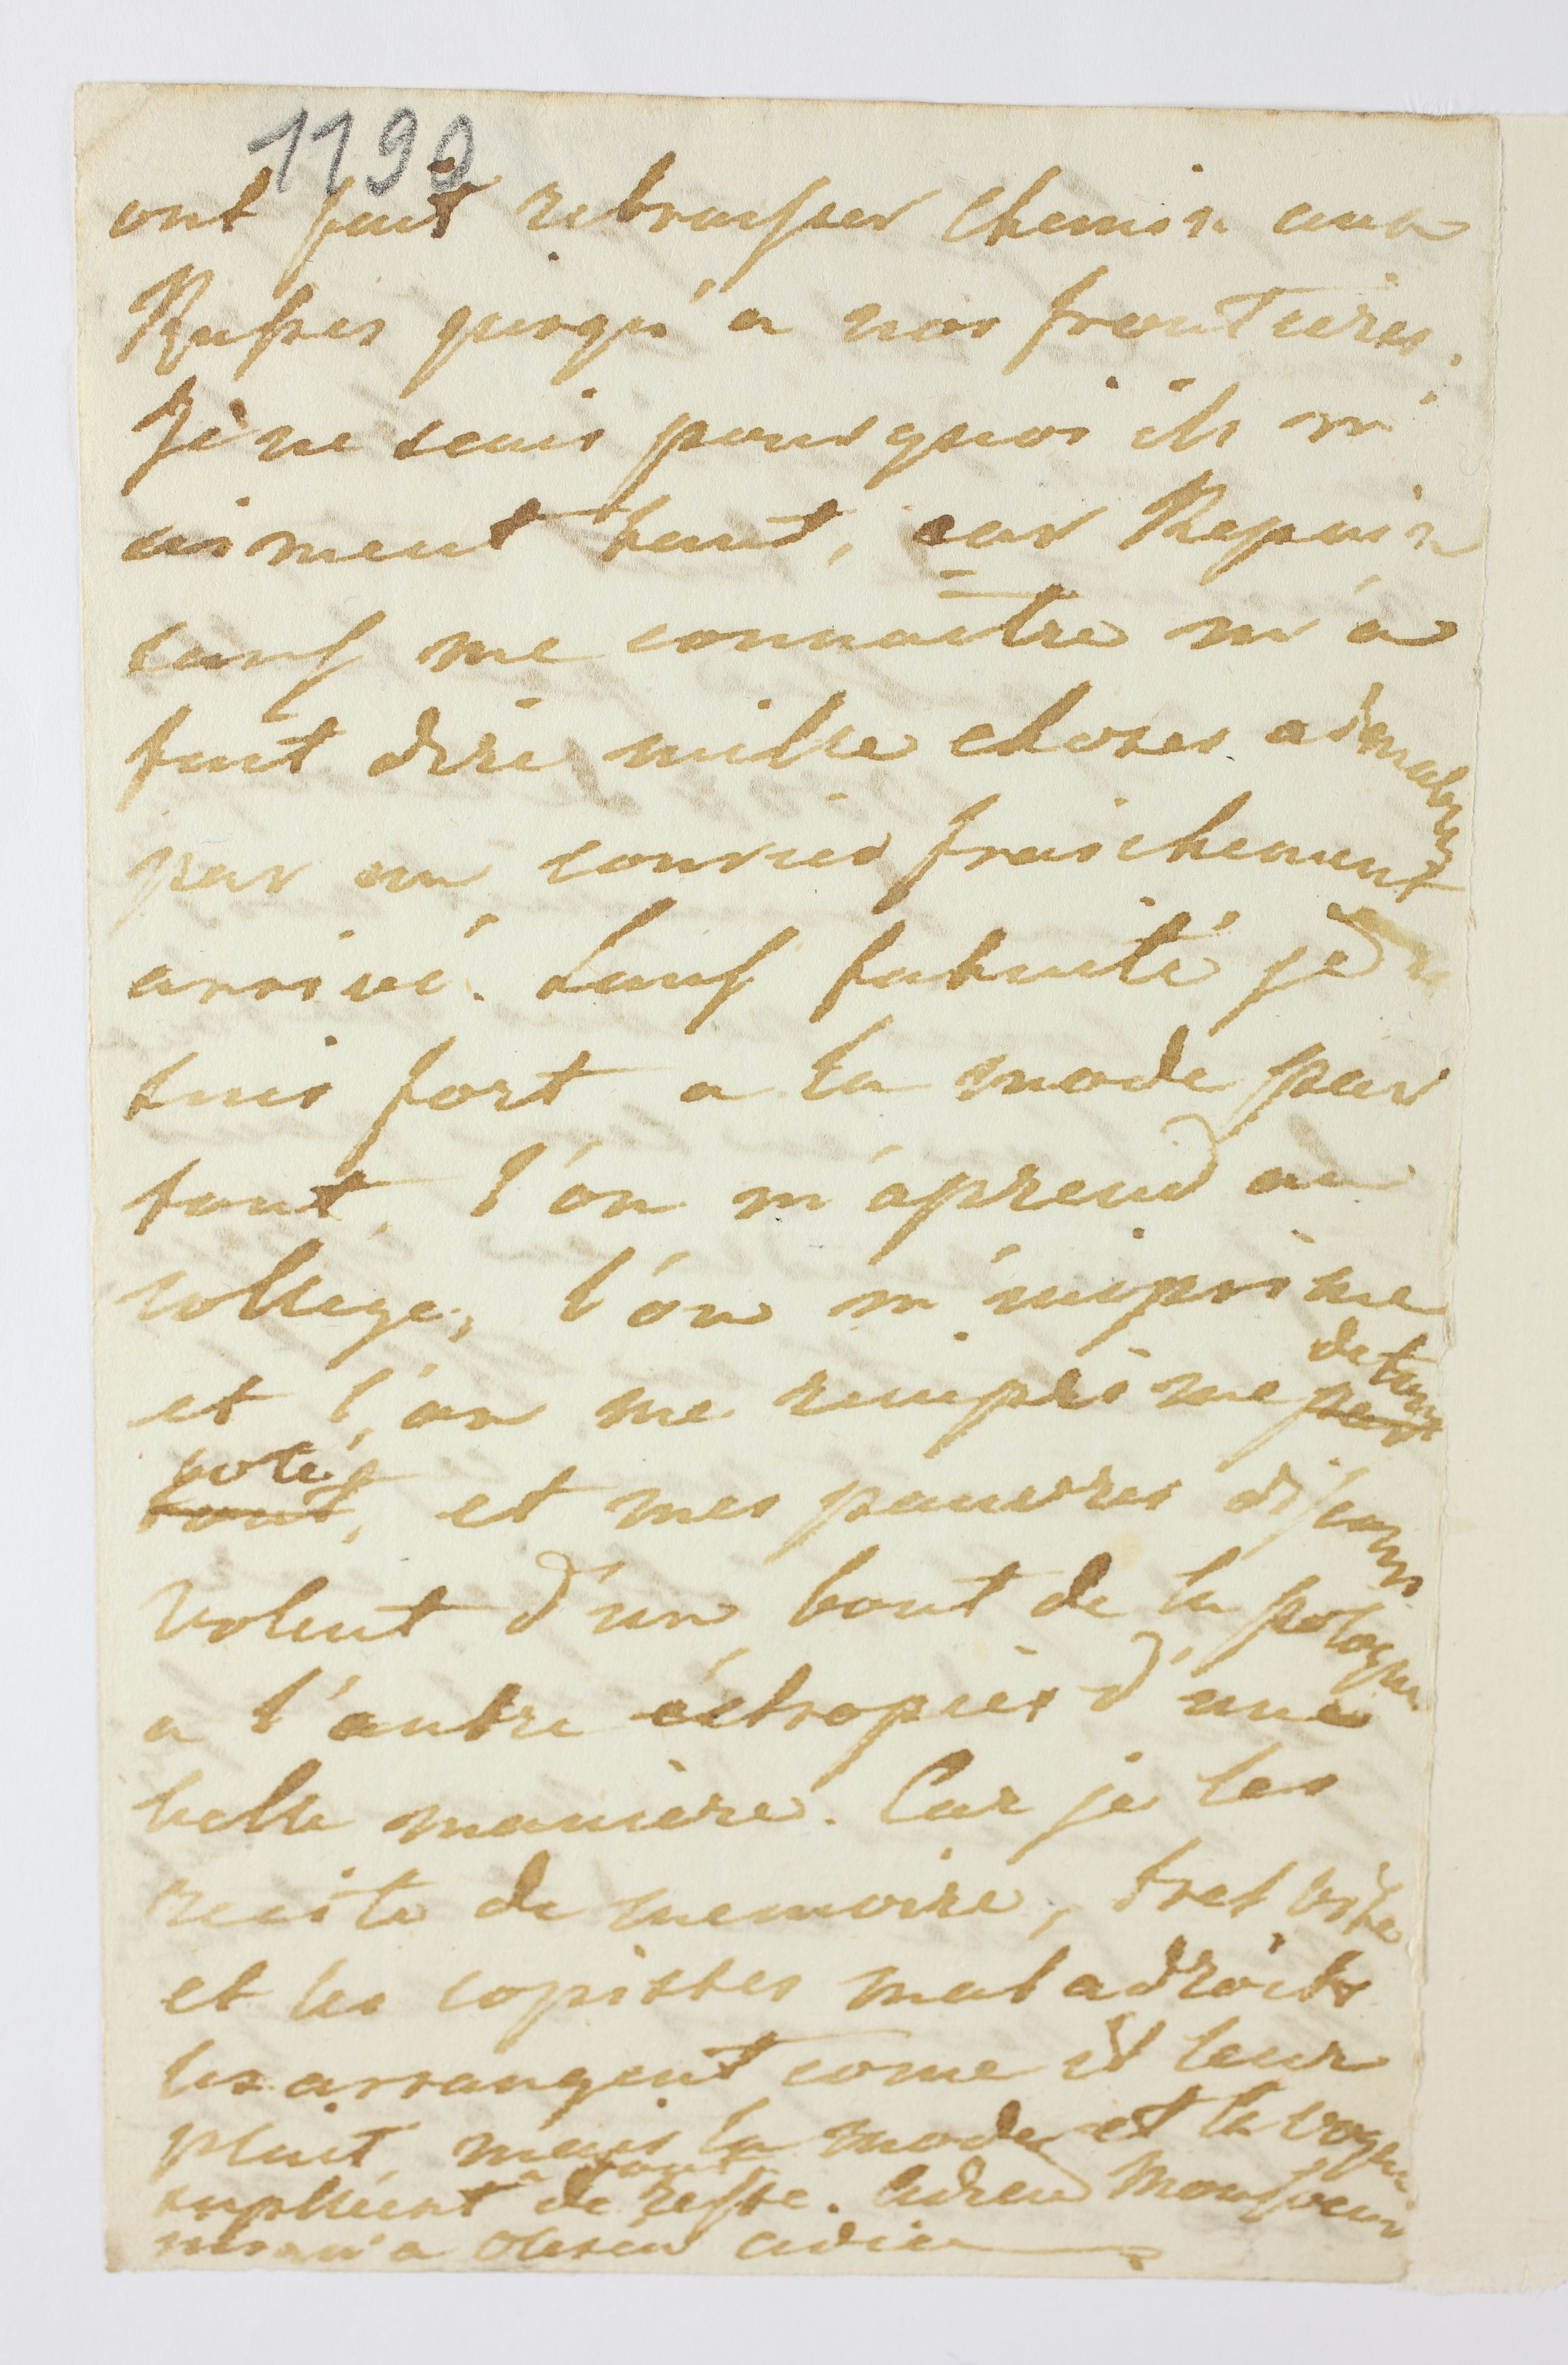 1190
ont fait rebrousser chemin aux
Russes jusqu'a nos frontieres.
Je ne scais pourquoi ils m'
aiment tant, car Repnin
sans me connaitre m'a
fait dire mille choses aimables
par un courier fraichement
arrivé. Sans fatuité je
suis fort a la mode par
tout, l'on m'aprend au
college, l'on m'imprime
et l'on me reimprime de tous
cotés, et mes pauvres discours
volent d'un bout de la pologne
a l'autre éstropiés d'une
belle maniere. Car je les
recite de memoire, tres vite
et les copistes maladroits
les arrangent come il leur
plait, mais la mode et la vogue
supleent a tout
de reste. Adieu Monsieur
jusqu'a adieu